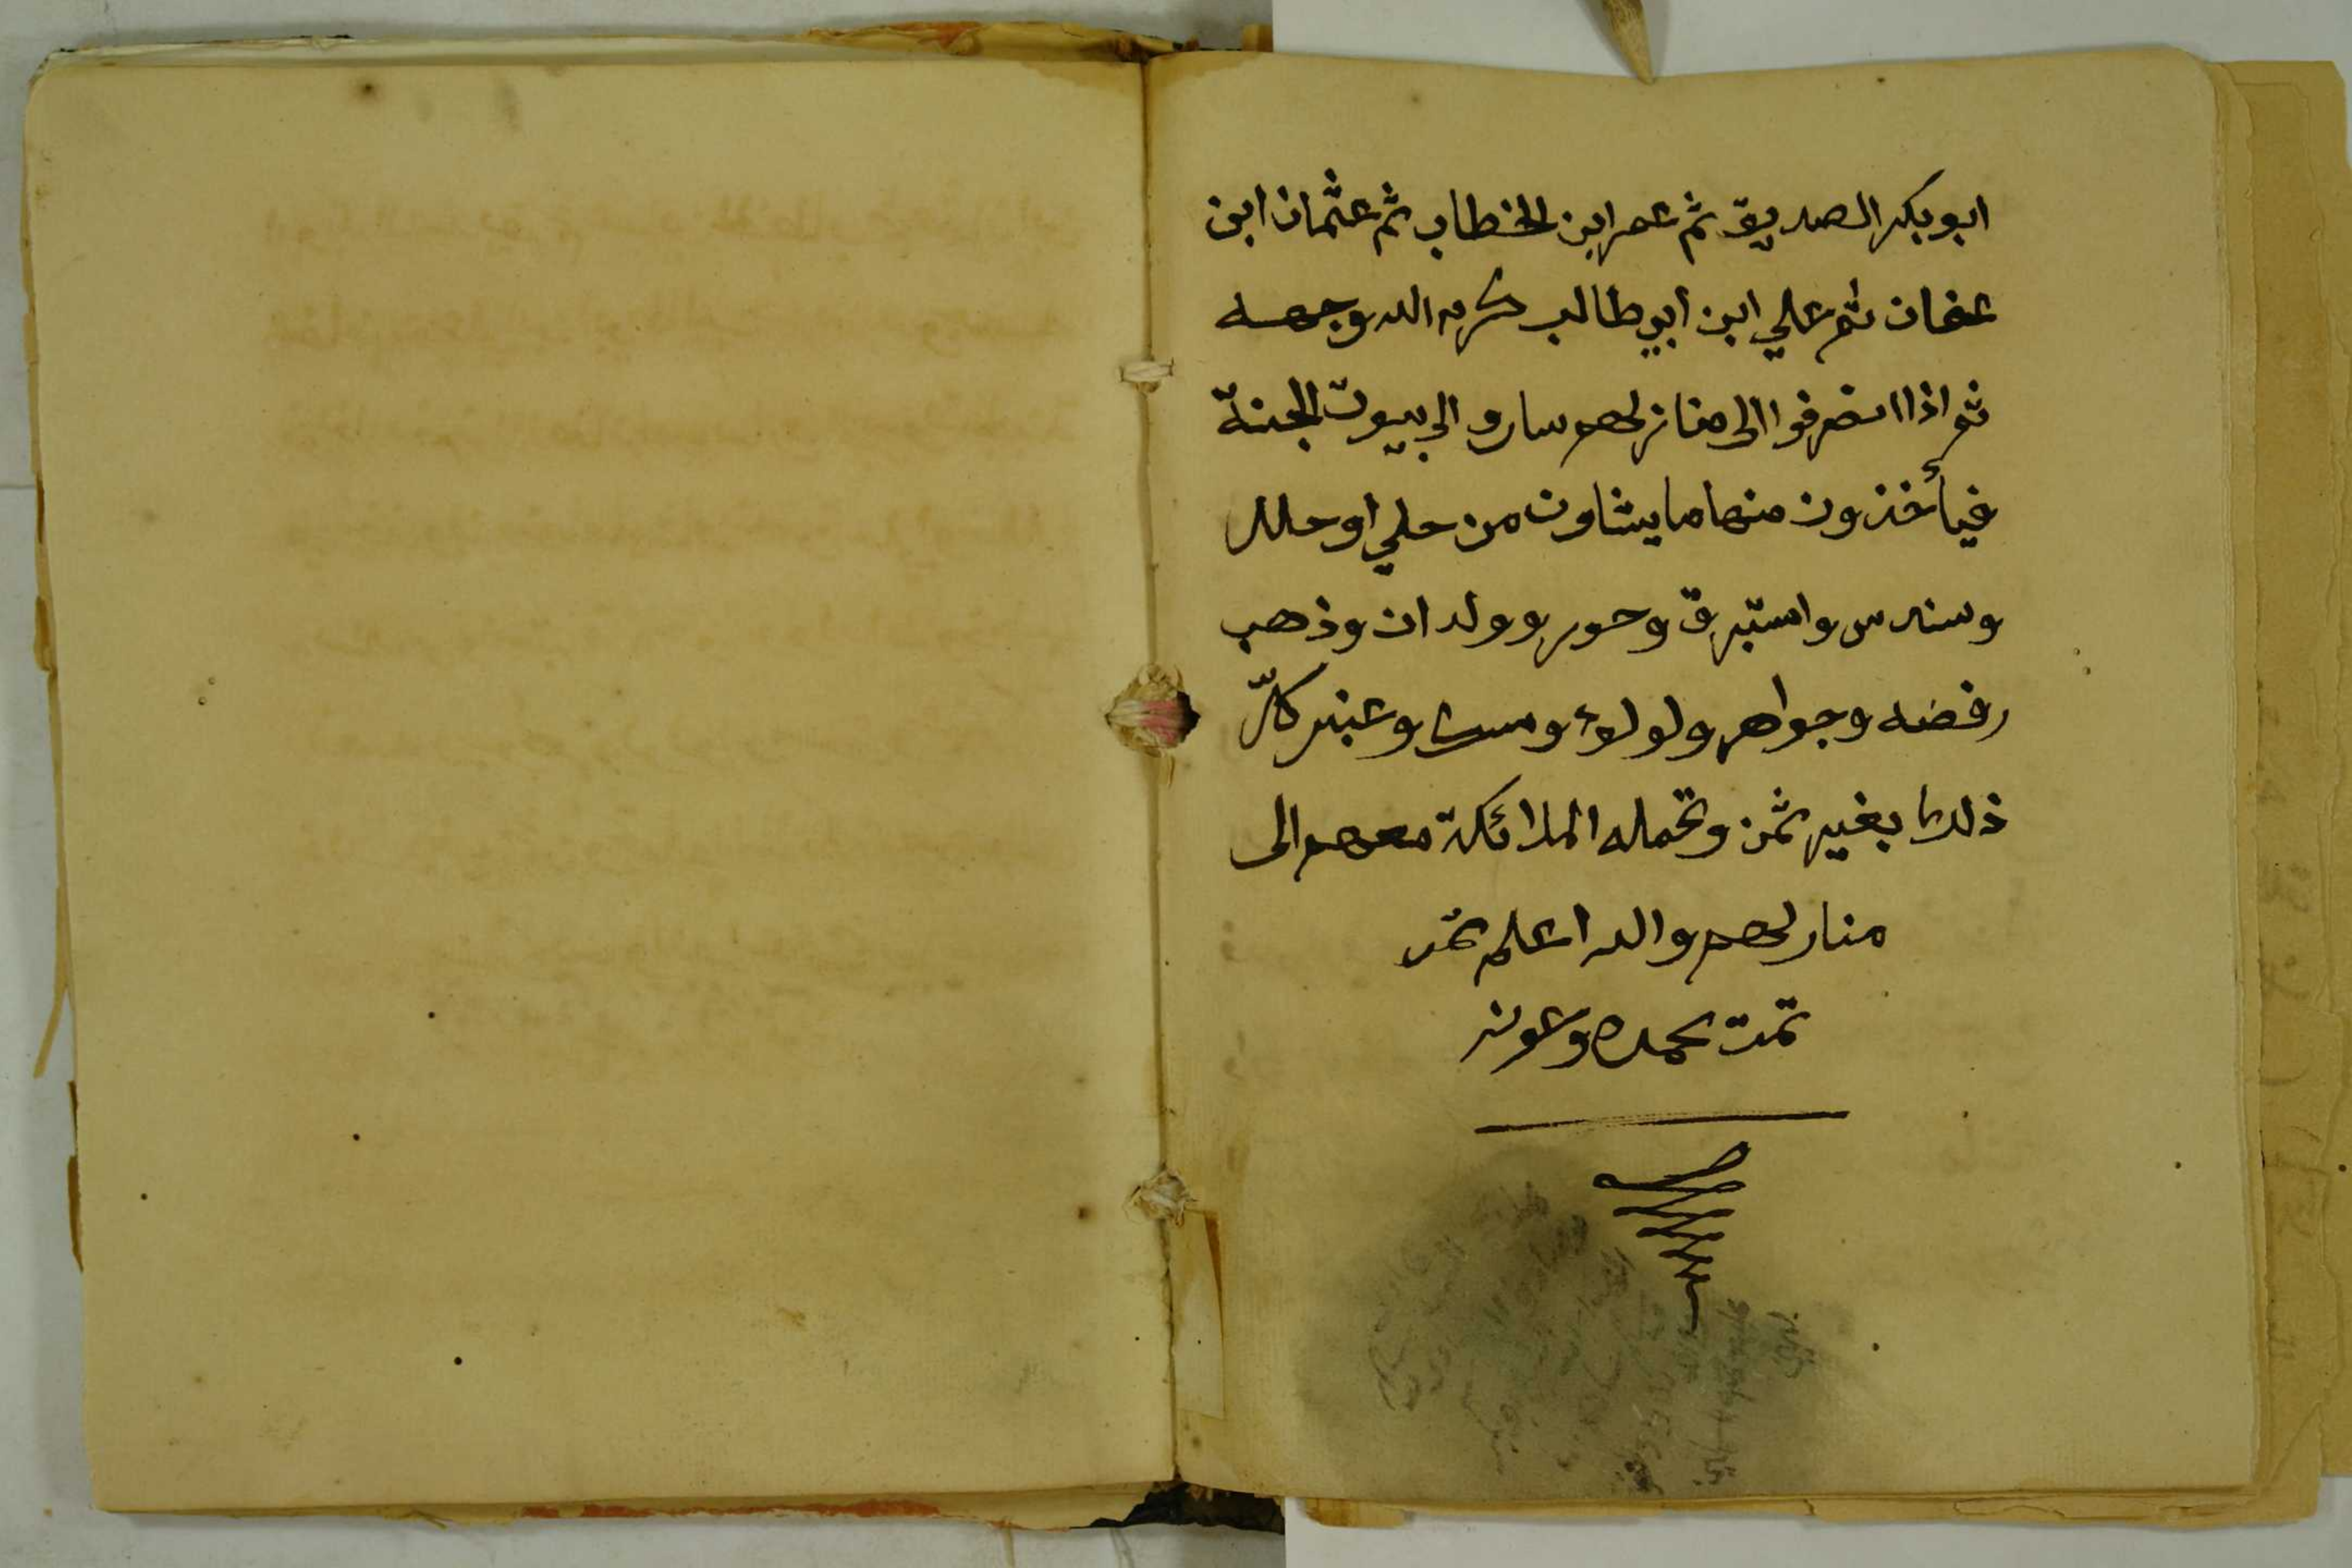 ابو بكر الصديق ثم عمر ابن الخطاب ثم عثمان ابن
عفان ثم علي ابن ابي طالب كرم الله وجهه
ثم اذا انصرفوا الى منازلهم سارو الى بيوت الجنة
فيأخذون منها ما يشاون من حلي او حلل
وسندس واستبرق وحور وولدان وذهب
وفضه وجواهر ولولوء ومسك وعنبر كلّ
ذلك بغير ثمن وتحمله الملائكة معهم الى
منازلهم والله اعلم تمت
تمت بحمده وعونه